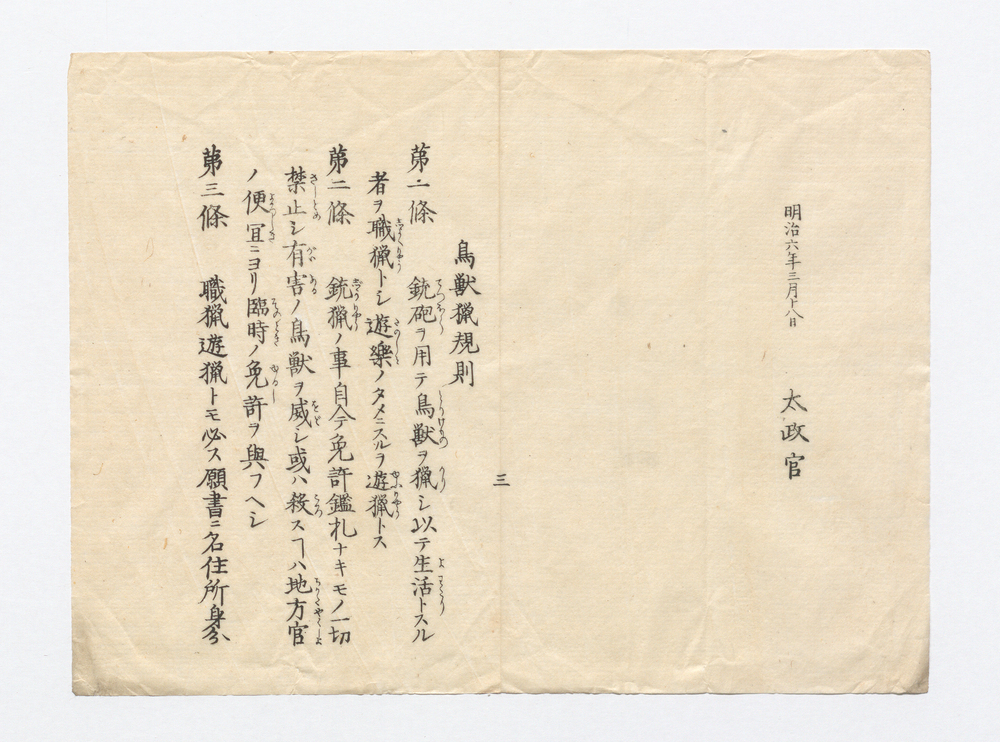 明治六年三月十八日
太政官
三
鳥獣猟規則
第一條　銃砲ヲ用テ鳥獣ヲ猟シ以テ生活トスル
者ヲ職猟トシ遊樂ノタメニスルヲ遊猟トス
第二條　銃猟ノ事自今免許鑑札ナキモノ一切
禁止シ有害ノ鳥獣ヲ威シ或ハ殺スヿハ地方官
ノ便宜ニヨリ臨時ノ免許ヲ與フヘシ
第三條　職猟遊猟トモ必ス願書ニ名住所身分